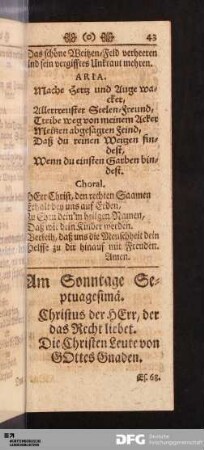 (o) 43
Das schöne Weitzen-Feld verheeren
Und sein vergifftes Unkraut mehren.
ARIA.
Mache Hertz und Auge wa-
cker,
Allertreuster Seelen-Freund,
Treibe weg von meinem Acker
Meinen abgesagten Feind,
Daß du reinen Weitzen fin-
dest,
Wenn du einsten Garben bin-
dest.
Choral.
HErr Christ, den rechten Saamen
uns auf Erden,
dein'm heilgen Namen,
Daß wir dein Kinder werden.
Verleih, daß uns die Menschheit dein
Helffe zu dir hinauf mit Freuden.
Amen.
Am Sonntage Se-
ptuagesimä.
Christus der HErr, der
das Recht liebet.
Die Christen Leute von
GOttes Gnaden.
Es. 68.
DFG Deutsche
Forschungsgemeinschaft